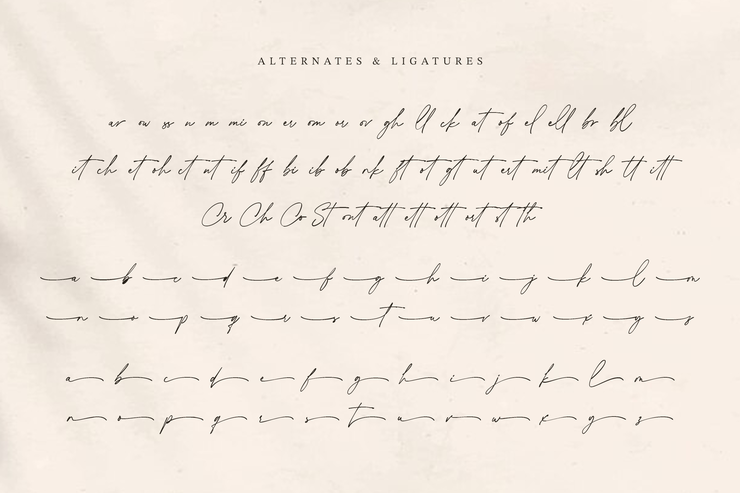 ALTERNATES & LIGATURES
ar ow ss n m mi on er om or ov gh ll ck at of el ell br bl
it ch et oh ct nt if ff bi ib ob nk ft ot gt ut ert mit lt sh tt itt
Cr Ch Co St ont att ett ott ort st th
a b c d e f g h i j k l m
n o p q r s t u v w x y s
a b c d e f g h i j k l m
n o p q r s t u v w x y s